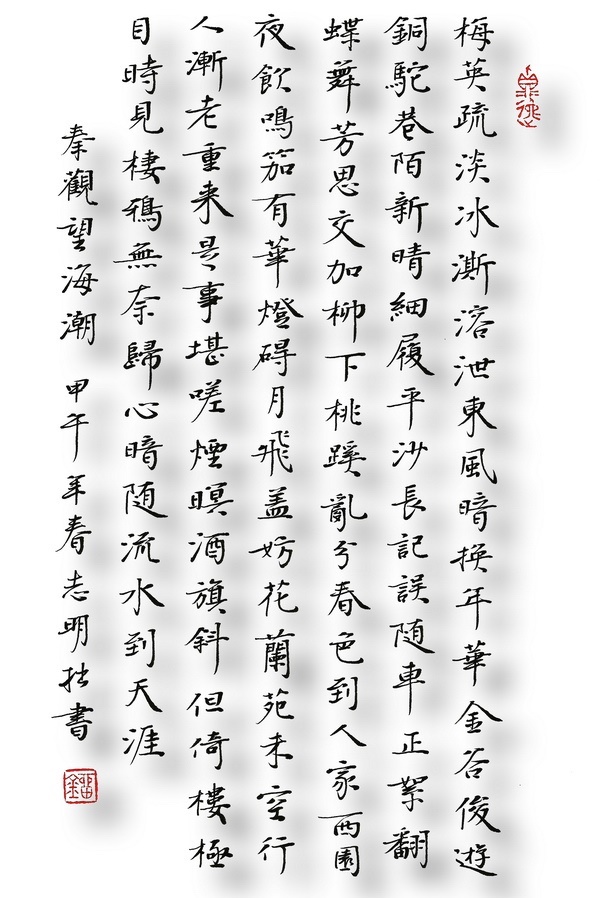 梅英疏淡冰澌溶泄東風暗換年華金谷俊遊
銅駝巷陌新晴細履平沙長記誤随車正絮翻
蝶舞芳思交加柳下桃蹊亂分春色到人家西園
夜飲鳴笳有華燈碍月飛盖妨花蘭苑未空行
人漸老重来是事堪嗟煙暝酒旗斜但倚樓極
目時見棲鴉無奈歸心暗随流水到天涯
秦觀望海潮 甲午年春志明拙書